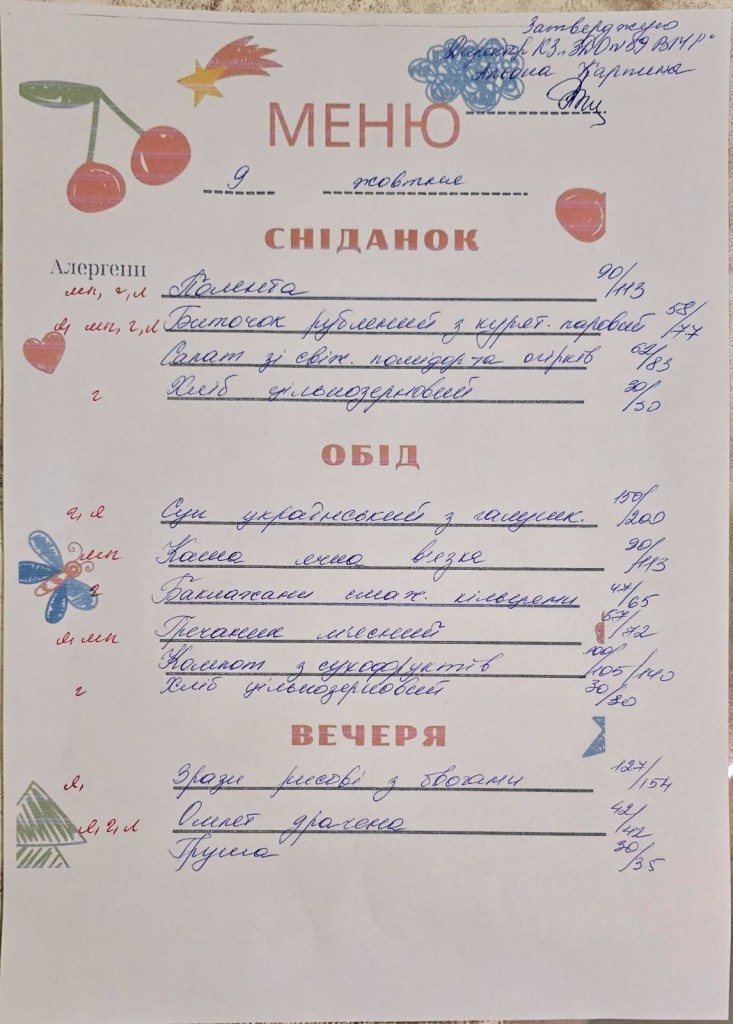 Затверджую
Директор КЗ "ЗДО №59 ВМР"
Альона Картина
МЕНЮ
9 жовтня
СНІДАНОК
Алергени
мп, г, л Полента 90/113
я, мп, г, л Биточок рублений з курят. паровий 58/77
Салат зі свіж. помідор та огірків 62/83
г Хліб цільнозерновий 30/30
ОБІД
г, я Суп український з галушк. 150/200
мп Каша ячна в'язка 90/113
г Баклажани смаж. кільцями 47/65
я, мп Гречаник мясний 57/72
Компот з сухофруктів 100/105/140
г Хліб цільнозерновий 30/30
ВЕЧЕРЯ
я, Зрази рисові з овочами 127/154
я, г, л Омлет драчена 42/42
Груша 30/35